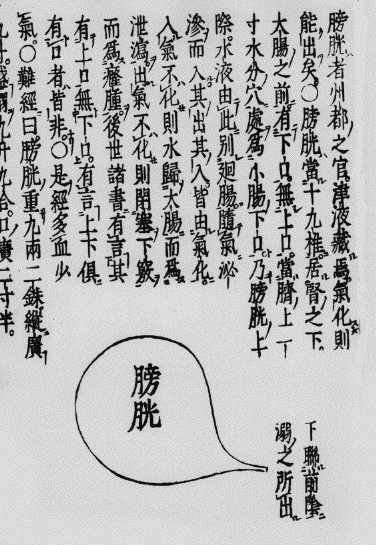 膀胱者州都之官津液藏焉氣化則
能出矣○膀胱當十九椎居腎之下
大腸之前有下口無上口當臍上一
寸水分穴處爲小腸下口乃膀胱上
際水液由此別廻腸隨氣泌
滲而入其出其入皆由氣化
入氣不化則水歸大腸而爲
泄瀉出氣不化則閉塞下竅
而爲癃腫後世諸書有言其
有上口無下口有言上下俱
有口者皆非○是經多血少
氣○難經曰膀胱重九兩二銖縱廣
九寸盛溺九升九合口廣二寸半
膀胱
下聯前陰
溺之所出